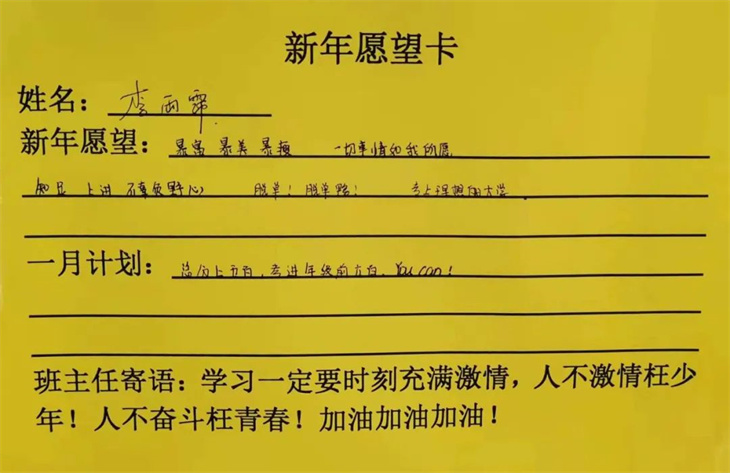 新年愿望卡
姓名：李雨霏
新年愿望：暴富 暴美 暴瘦 一切事情如我所愿
知足 上进 不辜负野心 脱单！脱单啦！ 考上理想的大学
一月计划：总分上六百，考进年级前六百，You can！
班主任寄语：学习一定要时刻充满激情，人不激情枉少
年！人不奋斗枉青春！加油加油加油！